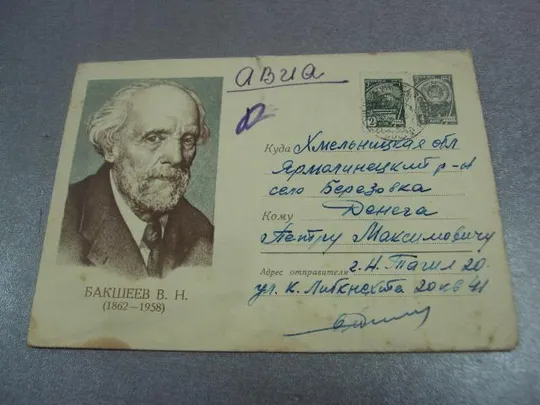 АВИА
Куда Хмельницкая обл
Ярмолинецкий р-н
село Березовка
Кому Денега
Петру Максимовичу
Адрес отправителя г. Н. Тагил 20.
ул. К. Либкнехта 20 кв 41
БАКШЕЕВ В. Н.
(1862—1958)